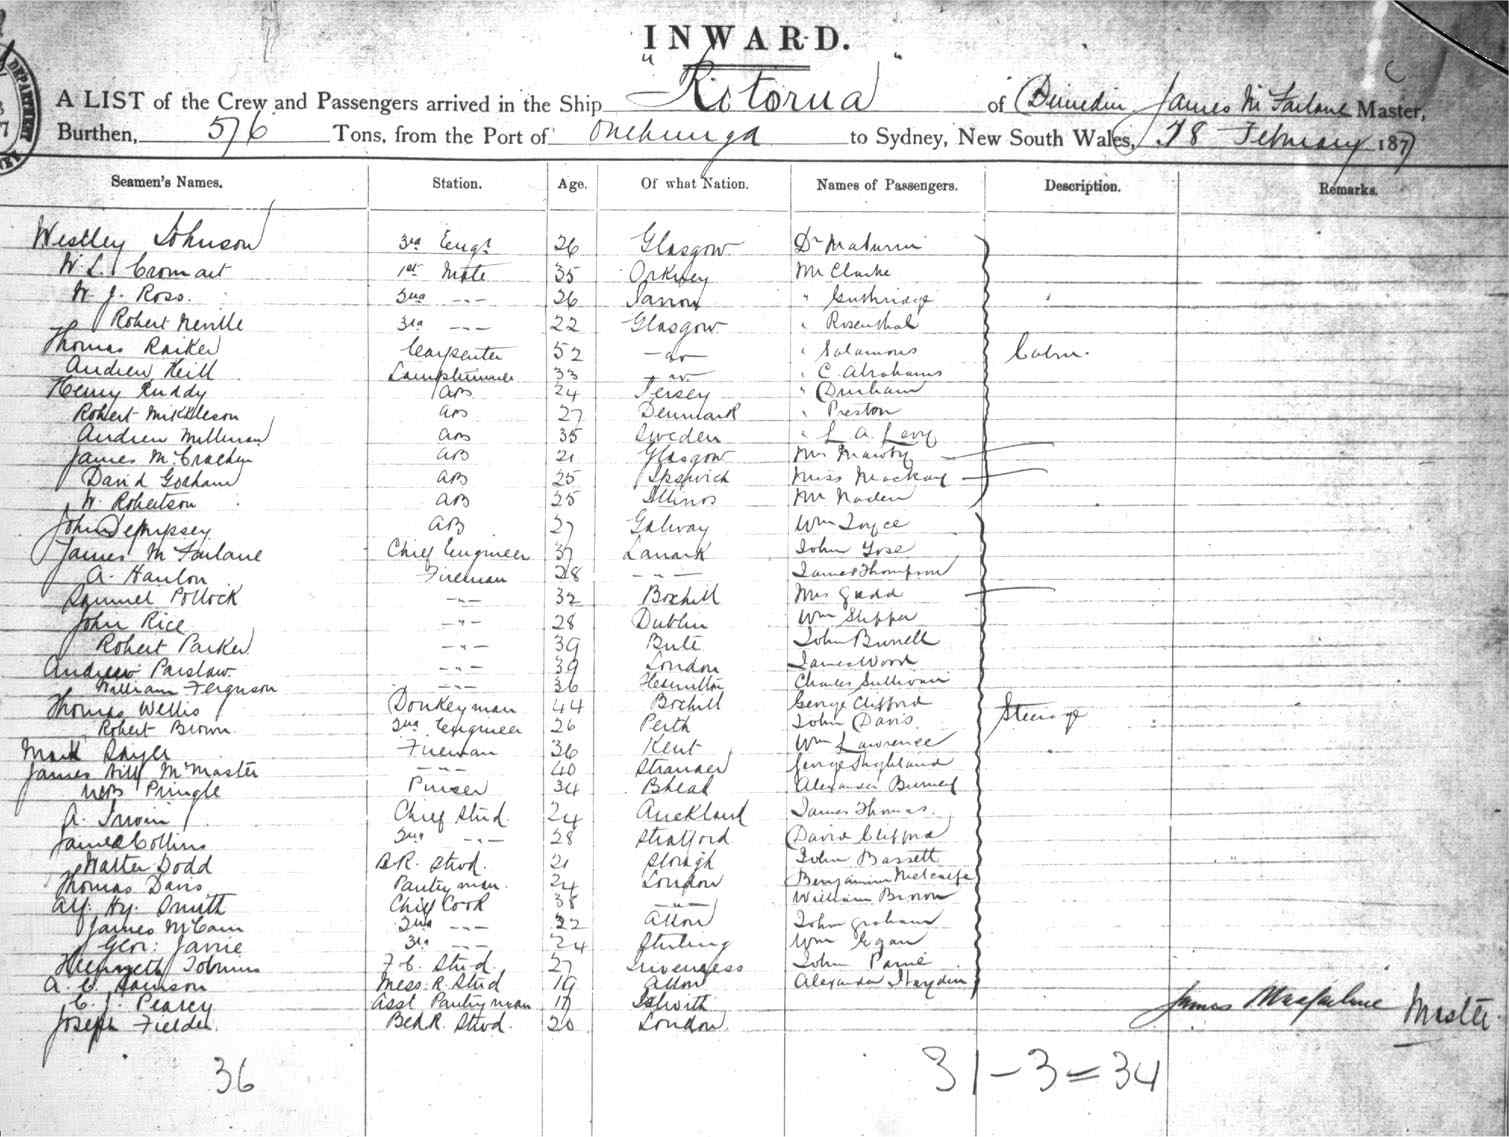 INWARD.
A LIST of the Crew and Passengers arrived in the Ship "Rotorua" of Dunedin, James McFarlane Master,
Burthen, 576 Tons, from the Port of Onehunga to Sydney, New South Wales, 28 February 1877
Seamen's Names. Station. Age. Of what Nation. Names of Passengers. Description. Remarks.
Westley Johnson 3rd Engr 26 Glasgow Dr Maturin
W. L. Cromart 1st Mate 35 Orkney Mr Clarke
W. J. Ross. 2nd --- 26 " Guthridge
Robert Neville 3rd --- 22 Glasgow " Rosenthal
Thomas Raiker Carpenter 52 - do - " Salamons Cabin.
Andrew Keill Lamptrimmer 33 - do - " C Abrahams
Henry Ruddy AB 24 Jersey " Durham
Robert Mickleson AB 27 Denmark " Preston
Andrew Millman AB 35 Sweden " L. A. Levy
James McCracken AB 21 Glasgow Mrs Mawby
David Gosham AB 25 Ipswich Miss Mackay
W. Robertson AB 25 Illinois Mr Naden
John Dempsey AB 27 Galway Wm Joyce
James McFarlane Chief Engineer 37 Lanark John Gose
A. Hanlon Fireman 28 --- James Thompson
Samuel Pollock -"- 32 Boxhill Mrs Gadd
John Rice -"- 28 Dublin Wm Skipper
Robert Parker -"- 39 Bute John Burrell
Andrew Parslow -"- 39 London James Wood
William Ferguson --- 36 Hamilton Charles Sullivan
Thomas Wellis Donkeyman 44 Boxhill George Clifford
Robert Brown 2nd Engineer 26 Perth John Davis Steerage
Mark Sayer Fireman 36 Kent Wm Lawrence
James McMaster --- 40 Stranraer George
Pringle Purser 34 Alexander Burney
A. Irwin Chief Stwd. 24 Auckland James Thomas.
James Collins 2nd --- 28 Stratford David Clifford
Walter Dodd B.R. Stwd. 21 Slough John Bassett
Thomas Davis Pantryman. 24 London Benjamin Metcalfe
Alf. Hy. Smith Chief Cook 38 -"- William Brown
James McCann 2nd --- 22 Alloa John Graham
Geor: Jarvie 3rd --- 24 Stirling Wm Egan
Kenneth F.C. Stwd 27 Inverness John
A. C. Mess. R. Stwd 19 Alloa Alexander Hayden
C. J. Pearcy Asst Pantryman 17 Isleworth
Joseph Fielder. Bed R. Stwd. 20 London.
James Macfarlane Master.
36 31 - 3 = 34